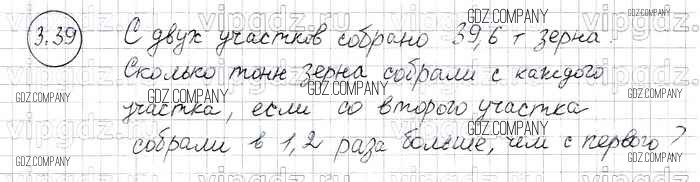 3.39 С двух участков собрано 39,6 т зерна.
Сколько тонн зерна собрали с каждого
участка, если со второго участка
собрали в 1,2 раза больше, чем с первого?
GDZ.COMPANY GDZ.COMPANY
GDZ.COMPANY GDZ.COMPANY GDZ.COMPANY
GDZ.COMPANY GDZ.COMPANY GDZ.COMPANY
vipgdz.ru